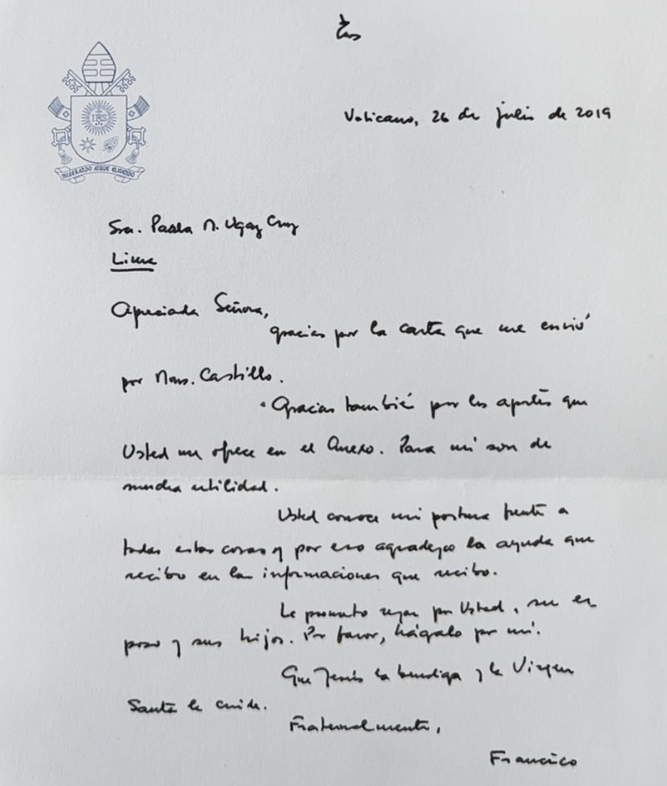 Vaticano, 26 de julio de 2019
MISERANDO ATQUE ELIGENDO
Sra. Paola M. Ugaz Cruz
Lima
Apreciada Señora,
gracias por la carta que me envió
por Mons. Castillo.
Gracias también por los aportes que
Usted me ofrece en el Anexo. Para mí son de
mucha utilidad.
Usted conoce mi postura frente a
todas estas cosas y por eso agradezco la ayuda que
recibo en las informaciones que recibo.
Le prometo rezar por Usted, su es
poso y sus hijos. Por favor, hágalo por mí.
Que Jesús la bendiga y la Virgen
Santa la cuide.
Fraternalmente,
Francisco